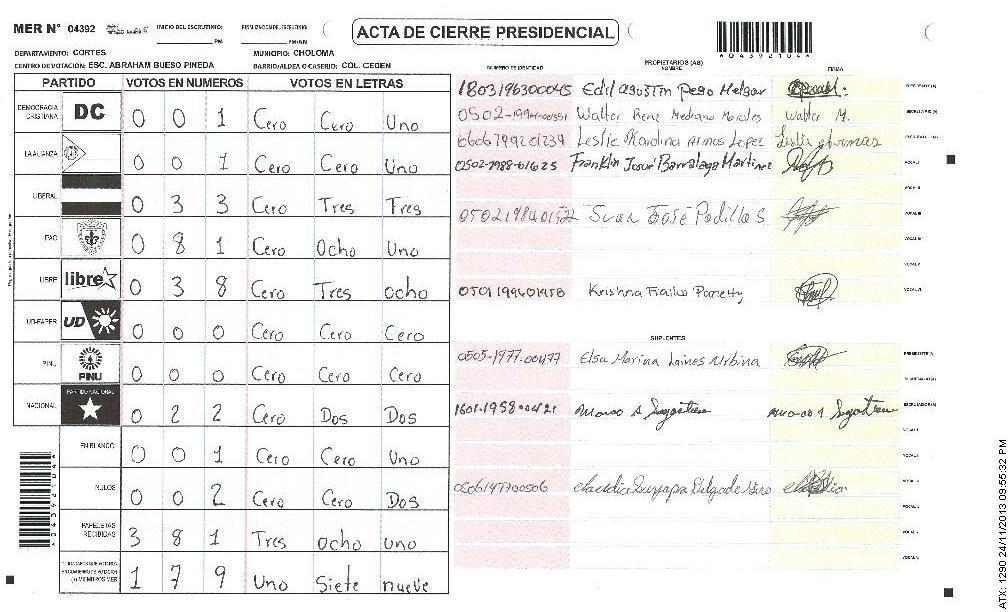 MER N° 04392 INICIO DEL ESCRUTINIO: FINALIZACION DE ESCRUTINIO:
ACTA DE CIERRE PRESIDENCIAL
PM AM/PM
*04392104*
DEPARTAMENTO: CORTES MUNICIPIO: CHOLOMA
CENTRO DE VOTACION: ESC. ABRAHAM BUESO PINEDA BARRIO/ALDEA O CASERIO: COL. CEDEN
PARTIDO VOTOS EN NUMEROS VOTOS EN LETRAS
DEMOCRACIA CRISTIANA DC 0 0 1 Cero Cero Uno
LA ALIANZA 0 0 1 Cero Cero Uno
LIBERAL 0 3 3 Cero Tres Tres
PAC 0 8 1 Cero Ocho Uno
LIBRE libre 0 3 8 Cero Tres ocho
UD-FAPER UD 0 0 0 Cero Cero Cero
PINU PINU 0 0 0 Cero Cero Cero
NACIONAL PARTIDO NACIONAL 0 2 2 Cero Dos Dos
EN BLANCO 0 0 1 Cero Cero Uno
NULOS 0 0 2 Cero Cero Dos
PAPELETAS RECIBIDAS 3 8 1 Tres ocho uno
1 7 9 Uno Siete nueve
NUMERO DE IDENTIDAD PROPIETARIOS (AS) NOMBRE FIRMA
1803196300045
0502-1994-00351 Walter Rene Medrano Morales Walter M.
Leslie Karolina Armas Lopez
0502-1988-01625 Franklin José Barralaga Martinez
José Padilla S
Krishna
SUPLENTES
0505-1977-00477 Elsa Marina Laines Urbina
1601-1958-00421 Marco A
0506197700506
*04392104*
ATX: 1290 24/11/2013 09:55:32 PM